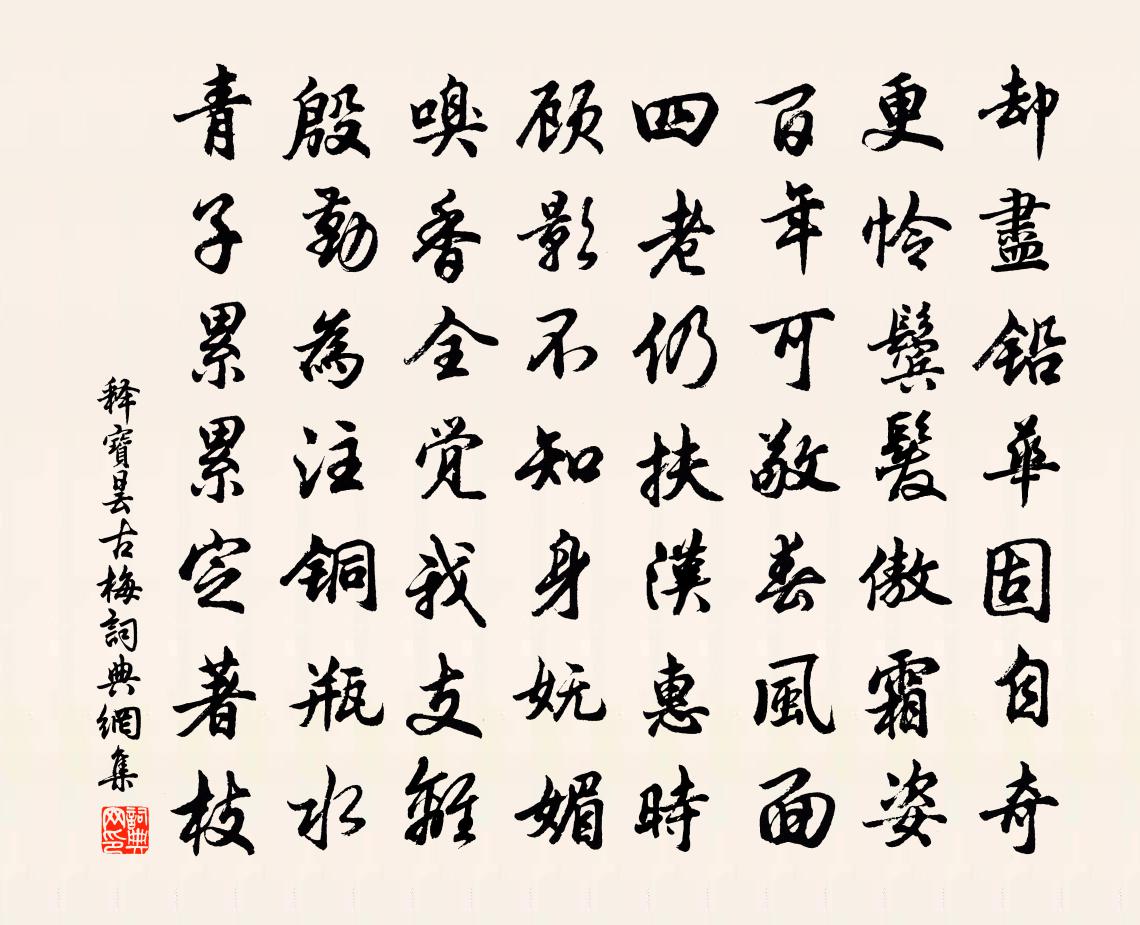 却盡鉛華固自奇
更怜鬢髮傲霜姿
百年可敬春風面
四老仍扶漢惠時
顾影不知身妩媚
嗅香全覚我支離
殷勤為注銅瓶水
青子累累定著枝
释寶曇古梅詞典網集
詞典网印